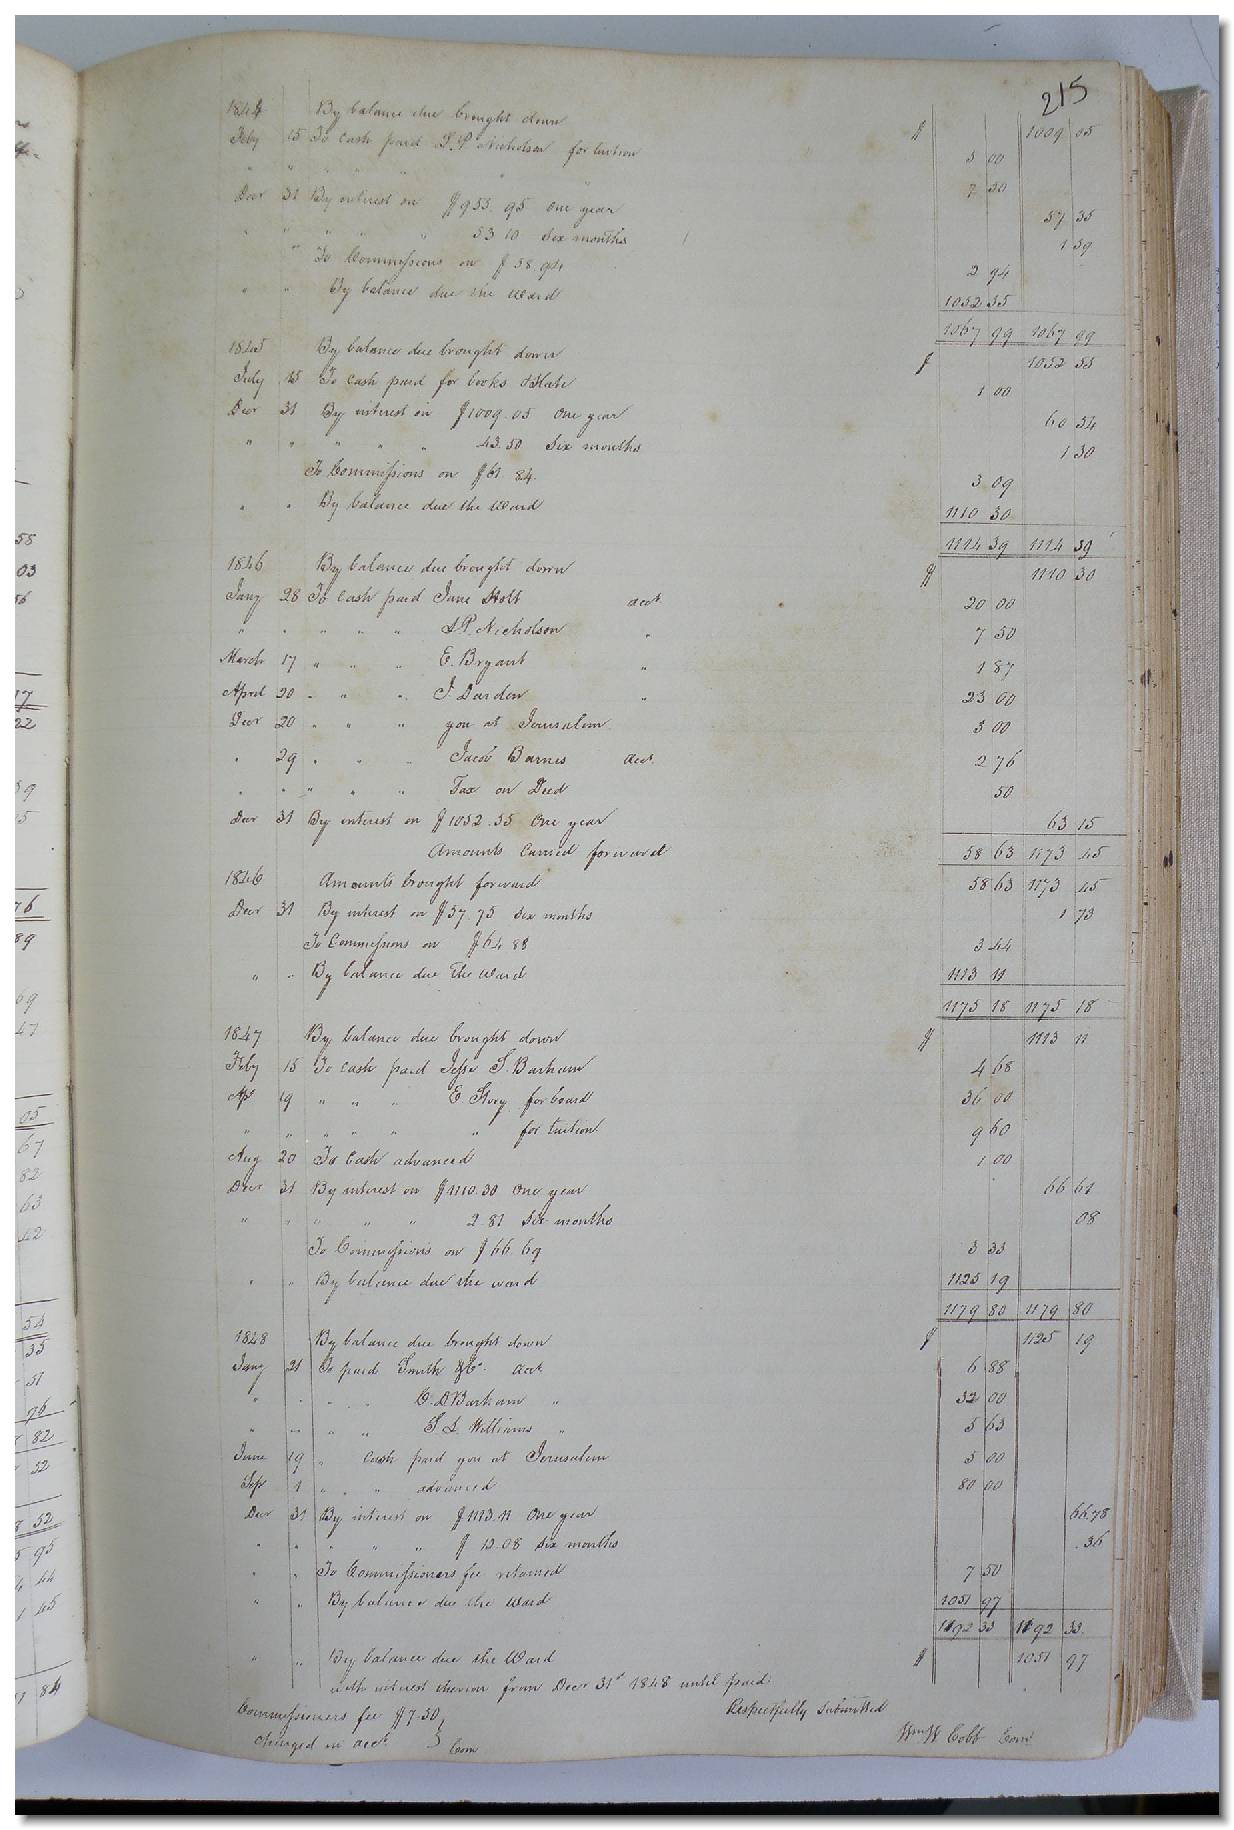 215
1844 By balance due brought down $ 1009 05
Feby 15 To Cash paid S. P. Nicholson for tuition 5 00
" " " " " " " 7 50
Decr 31 By interest on $955.95 one year 57 35
" " " " " 53 10 Six months 1 59
" To Commissions on $58.94 2 94
" " By balance due the Ward 1052 55
1067 99 1067 99
1845 By balance due brought down $ 1052 55
July 15 To Cash paid for books & Slate 1 00
Decr 31 By interest on $1009.05 One year 60 54
" " " " " 43.50 Six months 1 30
To Commissions on $61.84. 3 09
" " By balance due the Ward 1110 30
1114 39 1114 39
1846 By balance due brought down $ 1110 30
Jany 28 To Cash paid Jane Holt acct 20 00
" " " " " S. P. Nicholson " 7 50
March 17 " " " E. Bryant " 1 87
April 20 " " " J. Darden " 23 00
Decr 20 " " " you at Jerusalem 3 00
" 29 " " " Jacob Barnes acct 2 76
" " " " " Tax on Deed 50
Decr 31 By interest on $1052.55 One year 63 15
Amounts Carried forward 58 63 1173 45
1846 Amounts brought forward 58 63 1173 45
Decr 31 By interest on $57.75 Six months 1 73
To Commissions on $64 88 3 44
" " By balance due the Ward 1113 11
1175 18 1175 18
1847 By balance due brought down $ 1113 11
Feby 15 To Cash paid Jesse S. Barham 4 68
Apl 19 " " " E. Story for board 36 00
" " " " " " for tuition 9 60
Aug 20 To Cash advanced 1 00
Decr 31 By interest on $1110.30 One year 66 61
" " " " " 2.81 Six months 08
To Commissions on $66.69 3 33
" " By balance due the ward 1125 19
1179 80 1179 80
1848 By balance due brought down $ 1125 19
Jany 21 To paid Smith & Co. acct 6 88
" " " " C. D. Barham " 32 00
" " " " S. L. Williams " 5 63
June 19 " Cash paid you at Jerusalem 5 00
Sep 1 " " " advanced 80 00
Decr 31 By interest on $1113.11 One year 66.78
" " " " " $ 12.08 Six months .36
" " To Commissioners fee retained 7 50
" " By balance due the Ward 1051 97
1192 33 1192 33
" " By balance due the Ward $ 1051 97
with interest thereon from Decr 31st 1848 until paid.
Commissioners fee $7.50 Respectfully submitted
Charged in acct. } Com Wm W Cobb Comr